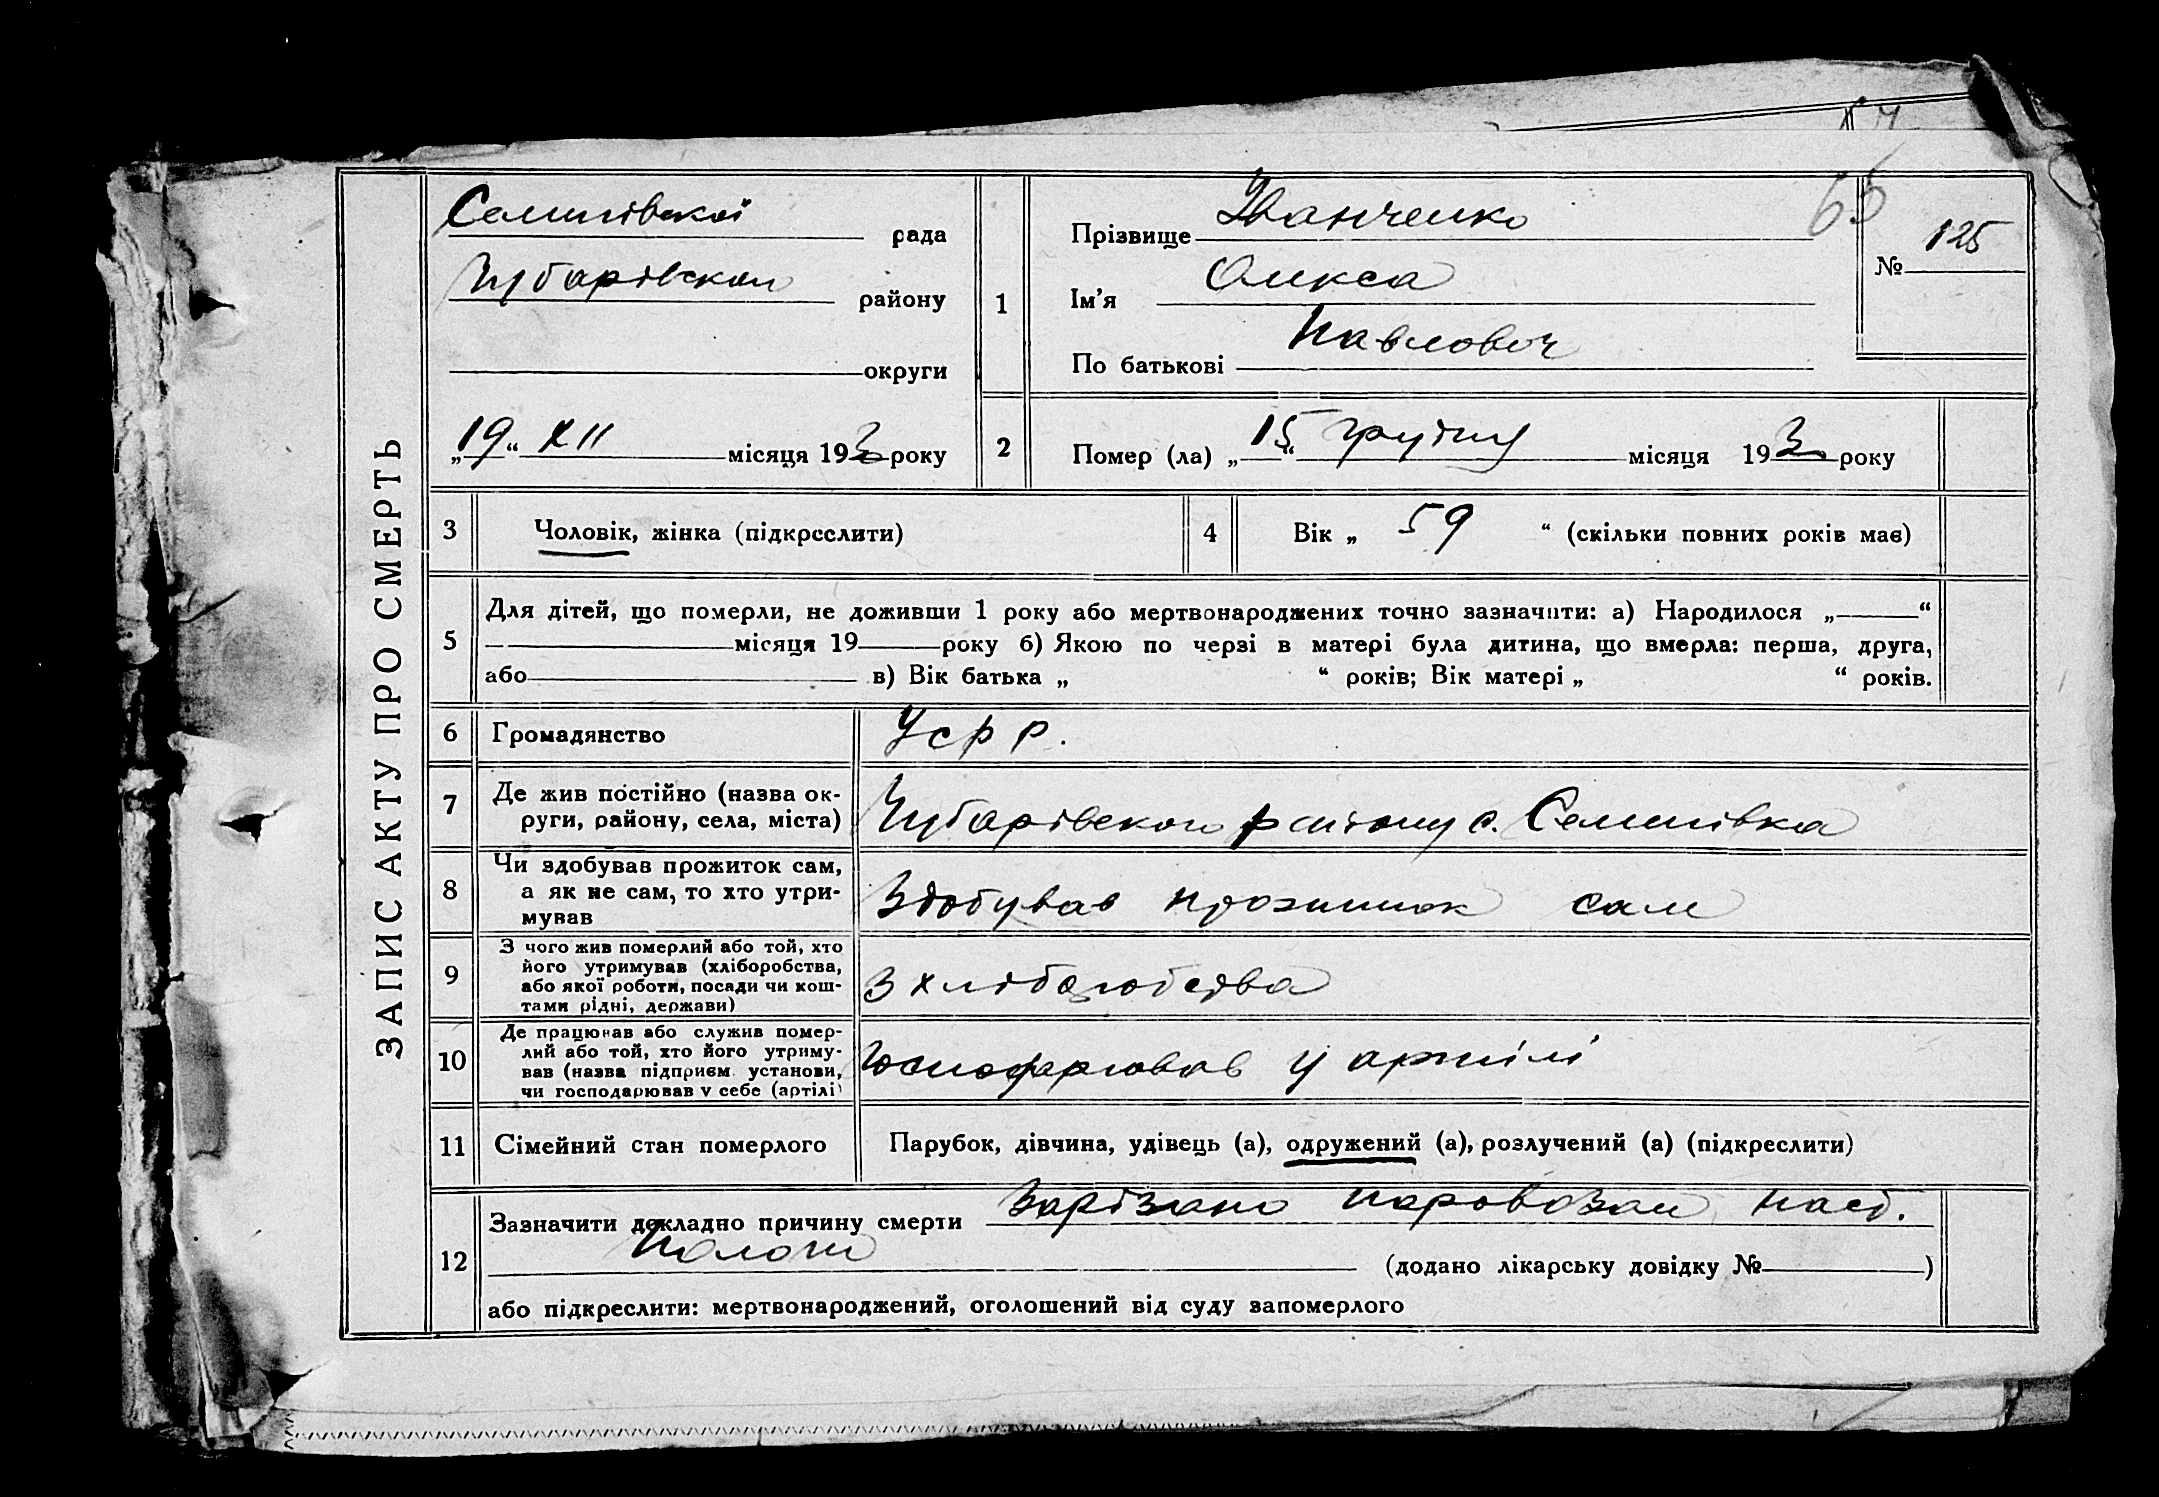 ЗАПИС АКТУ ПРО СМЕРТЬ
Семенівської рада
Чубарівского району
округи
„19“ XII місяця 1933 року
1
Прізвище Іванченко
Ім’я Олекса
По батькові Павлович
65
№ 125
2
Помер (ла) „15“ грудня місяця 1933 року
3 Чоловік, жінка (підкреслити)
4 Вік „ 59 “ (скільки повних років має)
5 Для дітей, що померли, не доживши 1 року або мертвонароджених точно зазначити: а) Народилося „ “
місяця 19 року б) Якою по черзі в матері була дитина, що вмерла: перша, друга,
або в) Вік батька „ “ років; Вік матері „ “ років.
6 Громадянство УСРР.
7 Де жив постійно (назва ок-
руги, району, села, міста) Чубарівского району с. Семенівка
8 Чи здобував прожиток сам,
а як не сам, то хто утри-
мував
Здобував прожиток сам
9 З чого жив померлий або той, хто
його утримував (хліборобства,
або якої роботи, посади чи кош-
тами рідні, держави)
З хліборобства
10 Де працював або служив помер-
лий або той, хто його утриму-
вав (назва підприєм. установи,
чи господарював у себе (артілі)
Господарював у артілі
11 Сімейний стан померлого Парубок, дівчина, удівець (а), одружений (а), розлучений (а) (підкреслити)
12 Зазначити докладно причину смерти Зарізано паровозом наст.
Пологи
(додано лікарську довідку № )
або підкреслити: мертвонароджений, оголошений від суду запомерлого